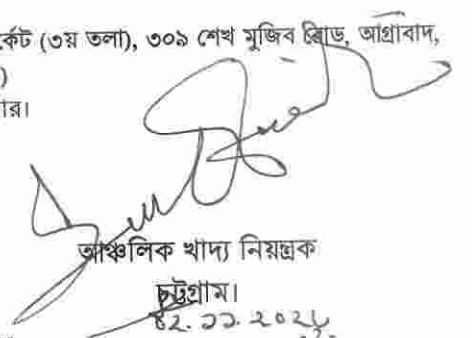 র্কেট (৩য় তলা), ৩০৯ শেখ মুজিব রোড, আগ্রাবাদ,
)
ার।
আঞ্চলিক খাদ্য নিয়ন্ত্রক
চট্টগ্রাম।